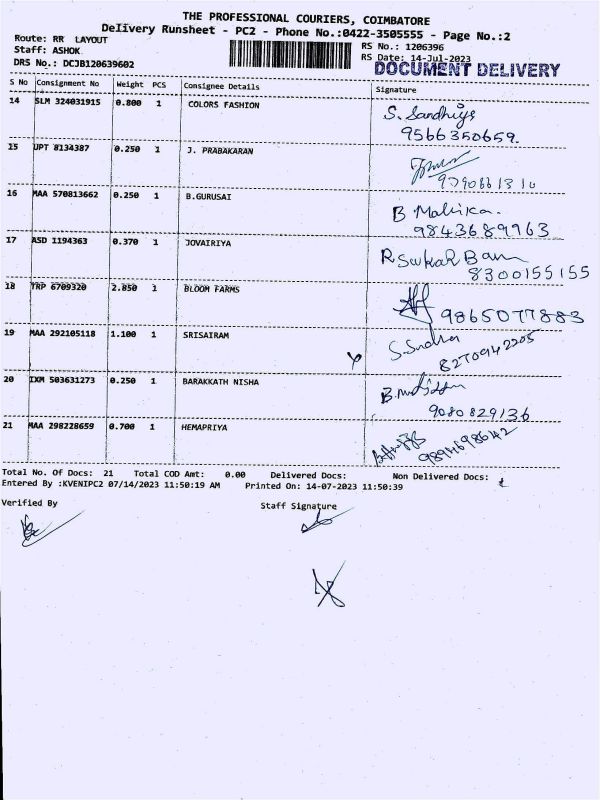 THE PROFESSIONAL COURIERS, COIMBATORE
Delivery Runsheet - PC2 - Phone No.:0422-3505555 - Page No.:2
Route: RR LAYOUT
RS No.: 1206396
Staff: ASHOK
RS Date: 14-Jul-2023
DRS No.: DCJB120639602
DOCUMENT DELIVERY
S No Consignment No Weight PCS Consignee Details Signature
14 SLM 324031915 0.800 1 COLORS FASHION S. Sandhiya
9566350659.
15 UPT 8134387 0.250 1 J. PRABAKARAN
9790661310
16 MAA 570813662 0.250 1 B.GURUSAI B Mahika.
9843689963
17 ASD 1194363 0.370 1 JOVAIRIYA
8300155155
18 TRP 6709320 2.850 1 BLOOM FARMS
9865077883
19 MAA 292105118 1.100 1 SRISAIRAM S.Sudha
8270942205
20 IXM 503631273 0.250 1 BARAKKATH NISHA
9080829136
21 MAA 298228659 0.700 1 HEMAPRIYA
9894698642
Total No. Of Docs: 21 Total COD Amt: 0.00 Delivered Docs: Non Delivered Docs:
Entered By :KVENIPC2 07/14/2023 11:50:19 AM Printed On: 14-07-2023 11:50:39
Verified By Staff Signature